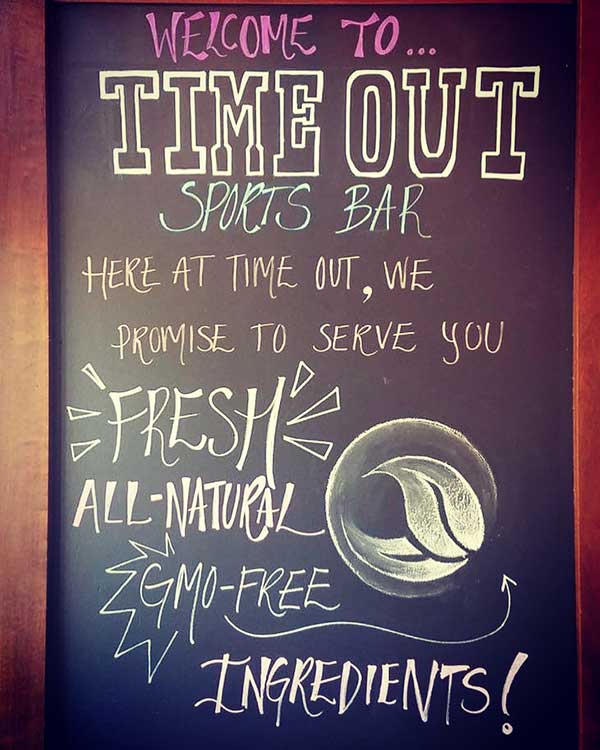 WELCOME TO...
TIME OUT
SPORTS BAR
HERE AT TIME OUT, WE
PROMISE TO SERVE YOU
FRESH
ALL-NATURAL
GMO-FREE
INGREDIENTS!